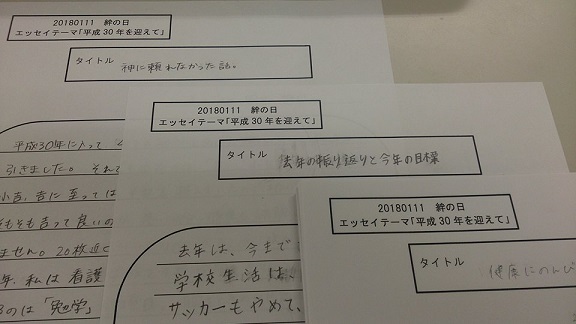 20180111 絆の日
エッセイテーマ「平成30年を迎えて」
タイトル 神に頼れなかった話。
平成30年に入って
引きました。それ
小吉、吉に至っては
そもそも吉って良いの
ません。20枚近く
年、私は看護
るのは「勉学」
20180111 絆の日
エッセイテーマ「平成30年を迎えて」
タイトル 去年の振り返りと今年の目標
去年は、今まで
学校生活は
サッカーもやめて、
20180111 絆の日
エッセイテーマ「平成30年を迎えて」
タイトル 健康にのんび